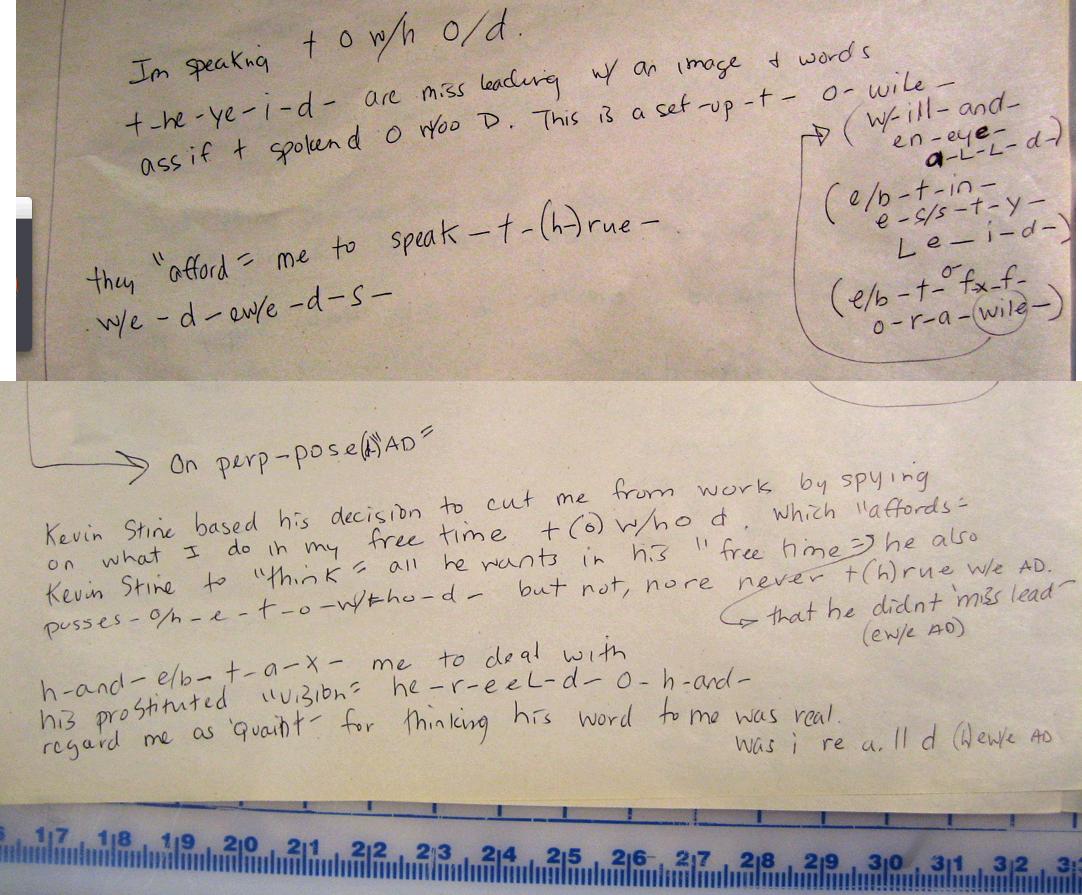 Im speaking t o w/h o/d.
t-he-ye-i-d- are miss leading w/ an image & words
ass if t spokend O w/oo D. This is a set-up-t- o- wile-
(w/-ill-and-
en-eye-
a-L-L-d-)
(e/b-t-in-
e-s/s-t-y-
L e-i-d-)
(e/b-t-o-fx-f-
o-r-a-wile-)
they "afford" me to speak-t-(h-)rue-
w/e-d-ew/e-d-s-
On perp-pose "AD"
Kevin Stine based his decision to cut me from work by spying
on what I do in my free time t(o) w/ho d. Which "affords"
Kevin Stine to "think" all he wants in his "free time" he also
posses-o/h-e-t-o-w/ho-d- but not, nore never t(h)rue w/e AD.
that he didnt 'miss lead'
(ew/e AD)
h-and-e/b-t-a-x- me to deal with
his prostituted "vision" he-r-eeL-d-o-h-and-
regard me as 'Quaint' for thinking his word to me was real.
was i re a. ll d ew/e AD
17 18 19 20 21 22 23 24 25 26 27 28 29 30 31 32